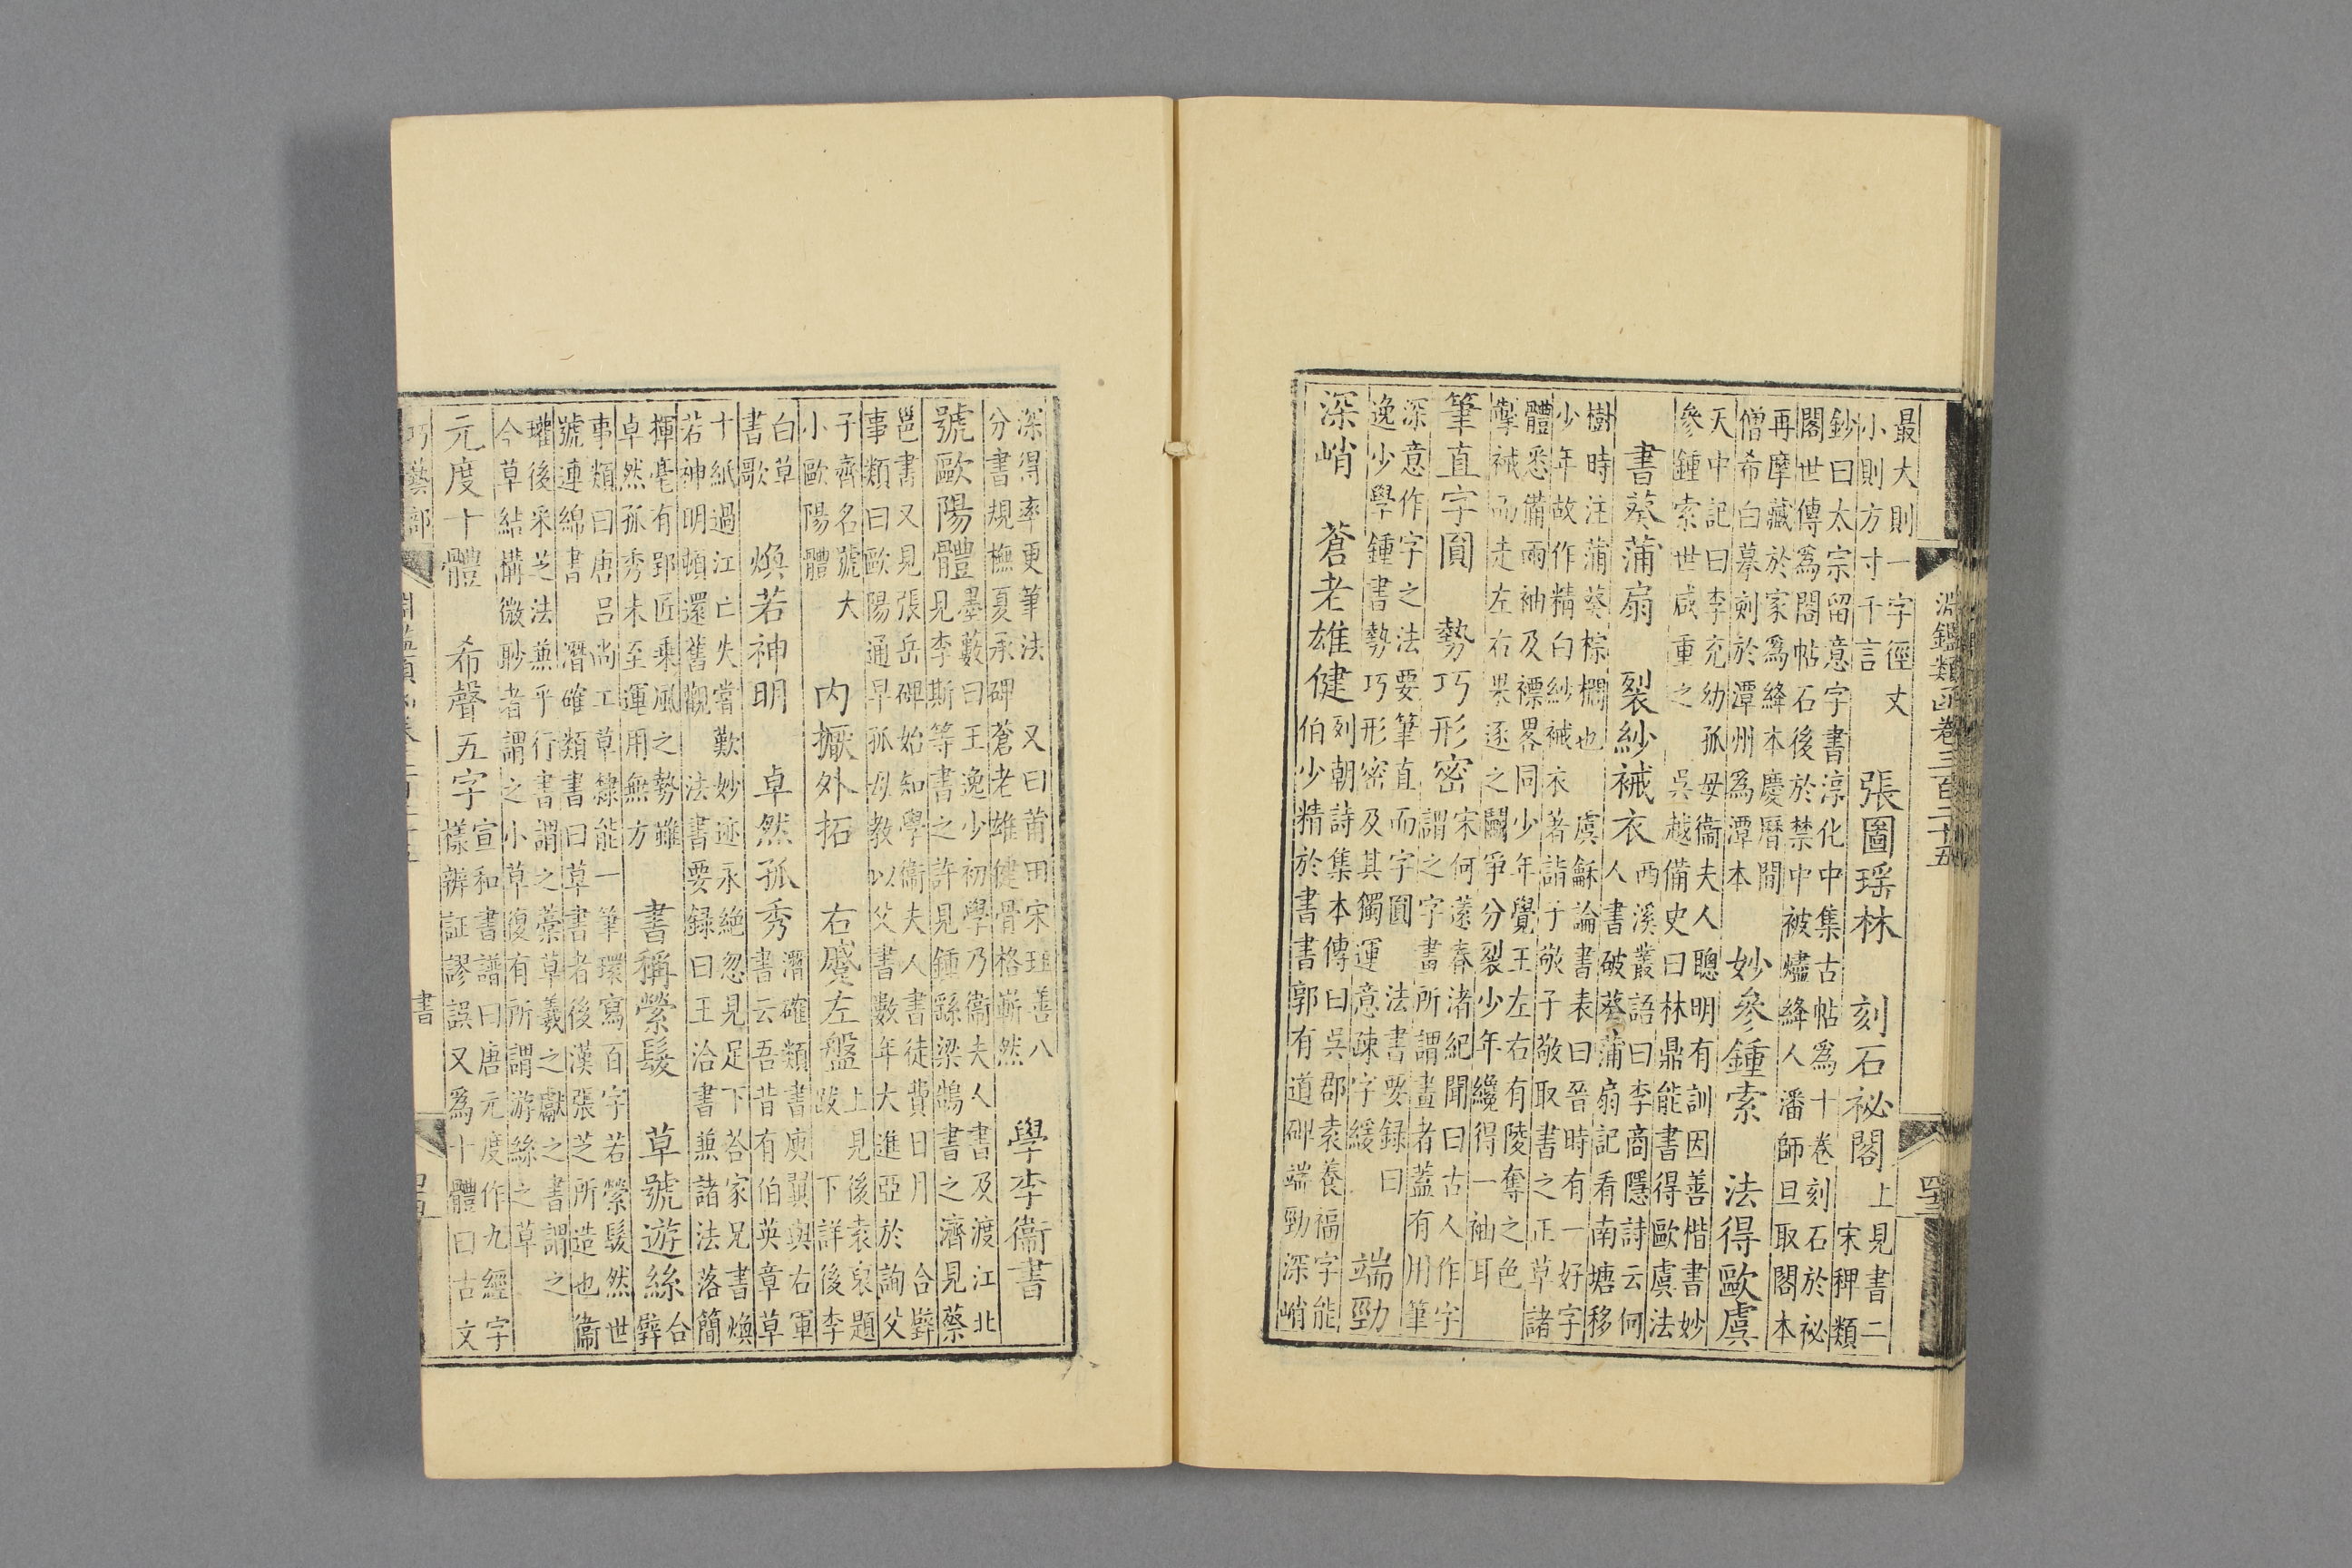 淵鑑類函卷三百二十五
最大則一字徑丈
小則方寸千言
張圖瑤林　刻石祕閣
上見書二
宋稗類
鈔曰太宗留意字書淳化中集古帖爲十卷刻石於祕
閣世傳爲閣帖石後於禁中被燼絳人潘師旦取閣本
再摩藏於家爲絳本慶曆間
僧希白摹刻於潭州爲潭本
妙參鍾索　法得歐虞
天中記曰李充幼孤母衞夫人聰明有訓因善楷書妙
參鍾索世咸重之　吳越備史曰林鼎能書得歐虞法
書葵蒲扇　裂紗裓衣
西溪叢語曰李商隱詩云何
人書破葵蒲扇記看南塘移
樹時注蒲葵棕櫚也　虞龢論書表曰晉時有一好字
少年故作精白紗裓衣著詣子敬子敬取書之正草諸
體悉備兩袖及褾畧同少年覺王左右有陵奪之色
掣裓而走左右果逐之鬭爭分裂少年纔得一袖耳
筆直字圓　勢巧形密
宋何薳春渚紀聞曰古人作字
謂之字書所謂畫者蓋有用筆
深意作字之法要筆直而字圓　法書要録曰
逸少學鍾書勢巧形密及其獨運意疎字緩
端勁
深峭　蒼老雄健
列朝詩集本傳曰吳郡袁養福字能
伯少精於書書郭有道碑端勁深峭
深得率更筆法　又曰莆田宋珏善八
分書規橅夏承碑蒼老雄健骨格嶄然
學李衞書
號歐陽體
墨藪曰王逸少初學乃衞夫人書及渡江北
見李斯等書之許見鍾繇梁鵠書之濟見蔡
邕書又見張岳碑始知學衞夫人書徒費日月　合璧
事類曰歐陽通早孤母教以父書數年大進亞於詢父
子齊名號大
小歐陽體
內擫外拓　右戚左盤
上見後袁裒題
跋下詳後李
白草
書歌
煥若神明　卓然孤秀
潛確類書庾翼與右軍
書云吾昔有伯英章草
十紙過江亡失嘗歎妙迹永絶忽見足下荅家兄書煥
若神明頓還舊觀　法書要録曰王洽書兼諸法落簡
揮毫有郢匠乘風之勢雖
卓然孤秀未至運用無方
書稱縈髮　草號遊絲
合
璧
事類曰唐呂尚工草隸能一筆環寫百字若縈髮然世
號連綿書　潛確類書曰草書者後漢張芝所造也衞
瓘後采芝法兼乎行書謂之藁草羲之獻之書謂之
今草結構微眇者謂之小草復有所謂游絲之草
元度十體　希聲五字
宣和書譜曰唐元度作九經字
樣辨証謬誤又爲十體曰古文
巧藝部
書